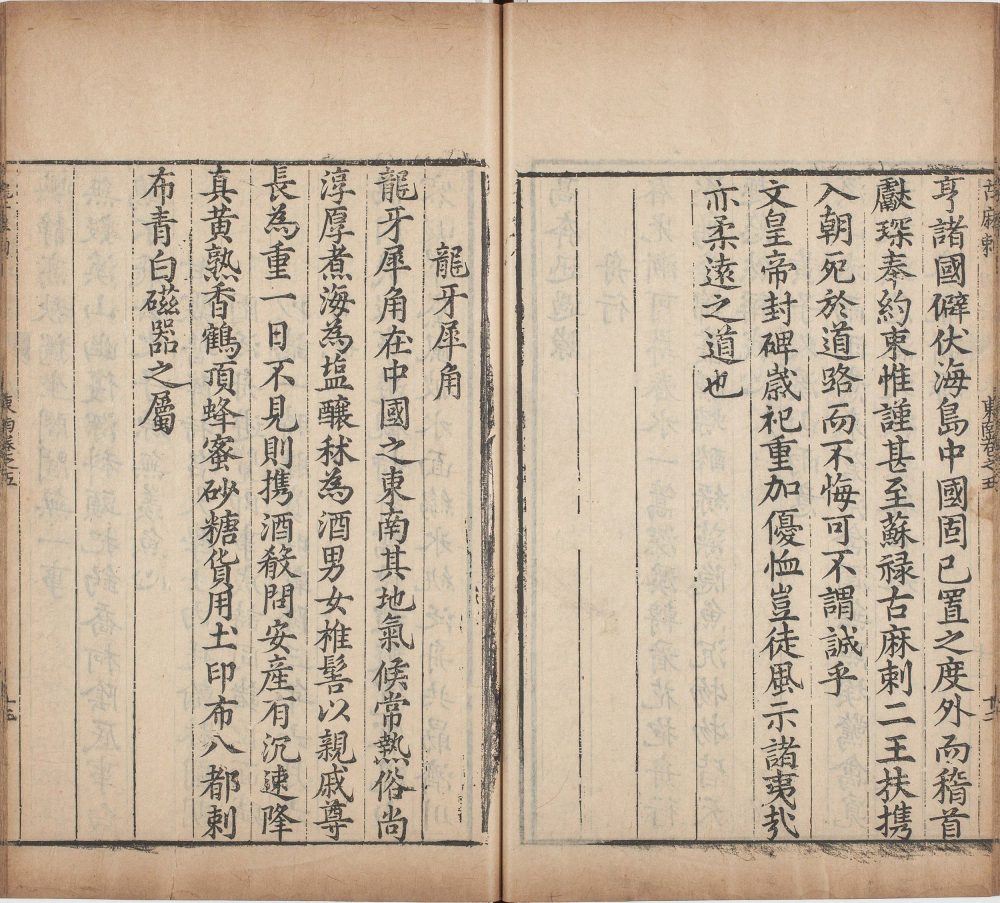 亨諸國僻伏海島中國固已置之度外而稽首
獻琛奉約束惟謹甚至蘇祿古麻剌二王扶携
入朝死於道路而不悔可不謂誠乎
文皇帝封碑歲祀重加優恤豈徒風示諸夷㢤
亦柔遠之道也
龍牙犀角
龍牙犀角在中國之東南其地氣候常熱俗尚
淳厚煮海為塩釀秫為酒男女椎髻以親戚尊
長為重一日不見則携酒殽問安産有沉速降
真黄熟香鶴頂蜂蜜砂糖貨用土印布八都剌
布青白磁器之屬